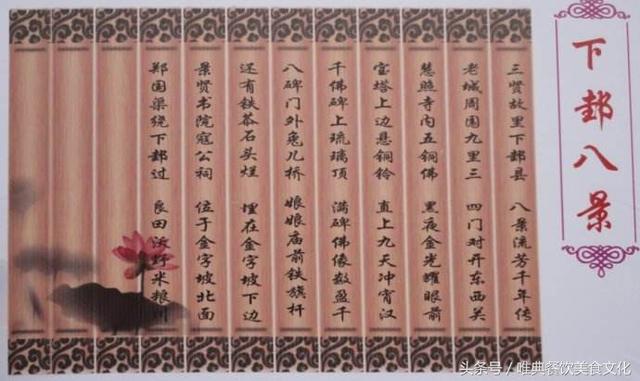 下邽八景
三贤故里下邽县 八景流芳千年传
老城周围九里三 四门对开东西关
慧照寺内五铜佛 黑夜金光耀眼前
宝塔上边悬铜铃 直上九天冲宵汉
千佛碑上琉璃顶 满碑佛像数盈千
八碑门外兔儿桥 娘娘庙前铁旗杆
还有铁石头 埋在金字坡下边
景贤书院寇公祠 位于金字坡北面
郑国渠绕下邽过 良田沃野米粮川
头条号/唯典餐饮美食文化